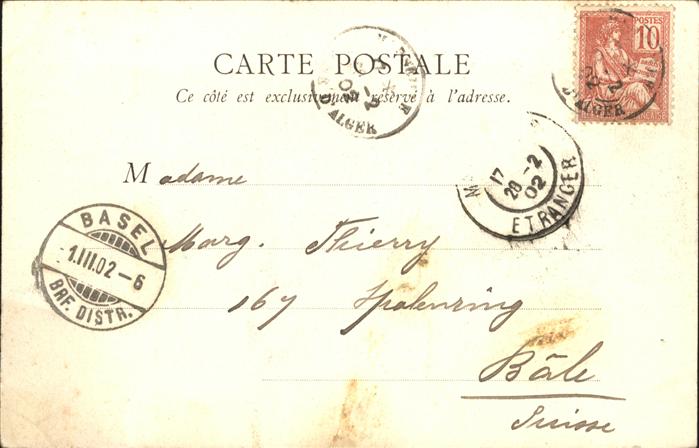 CARTE POSTALE
Ce côté est exclusivement réservé à l'adresse.
POSTES
10
D'ALGER
D'ALGER
17
28-2
02
ETRANGER
Madame
Marg. Thierry
167 Spalenring
Bâle
Suisse
BASEL
-1.III.02-6
BRF. DISTR.